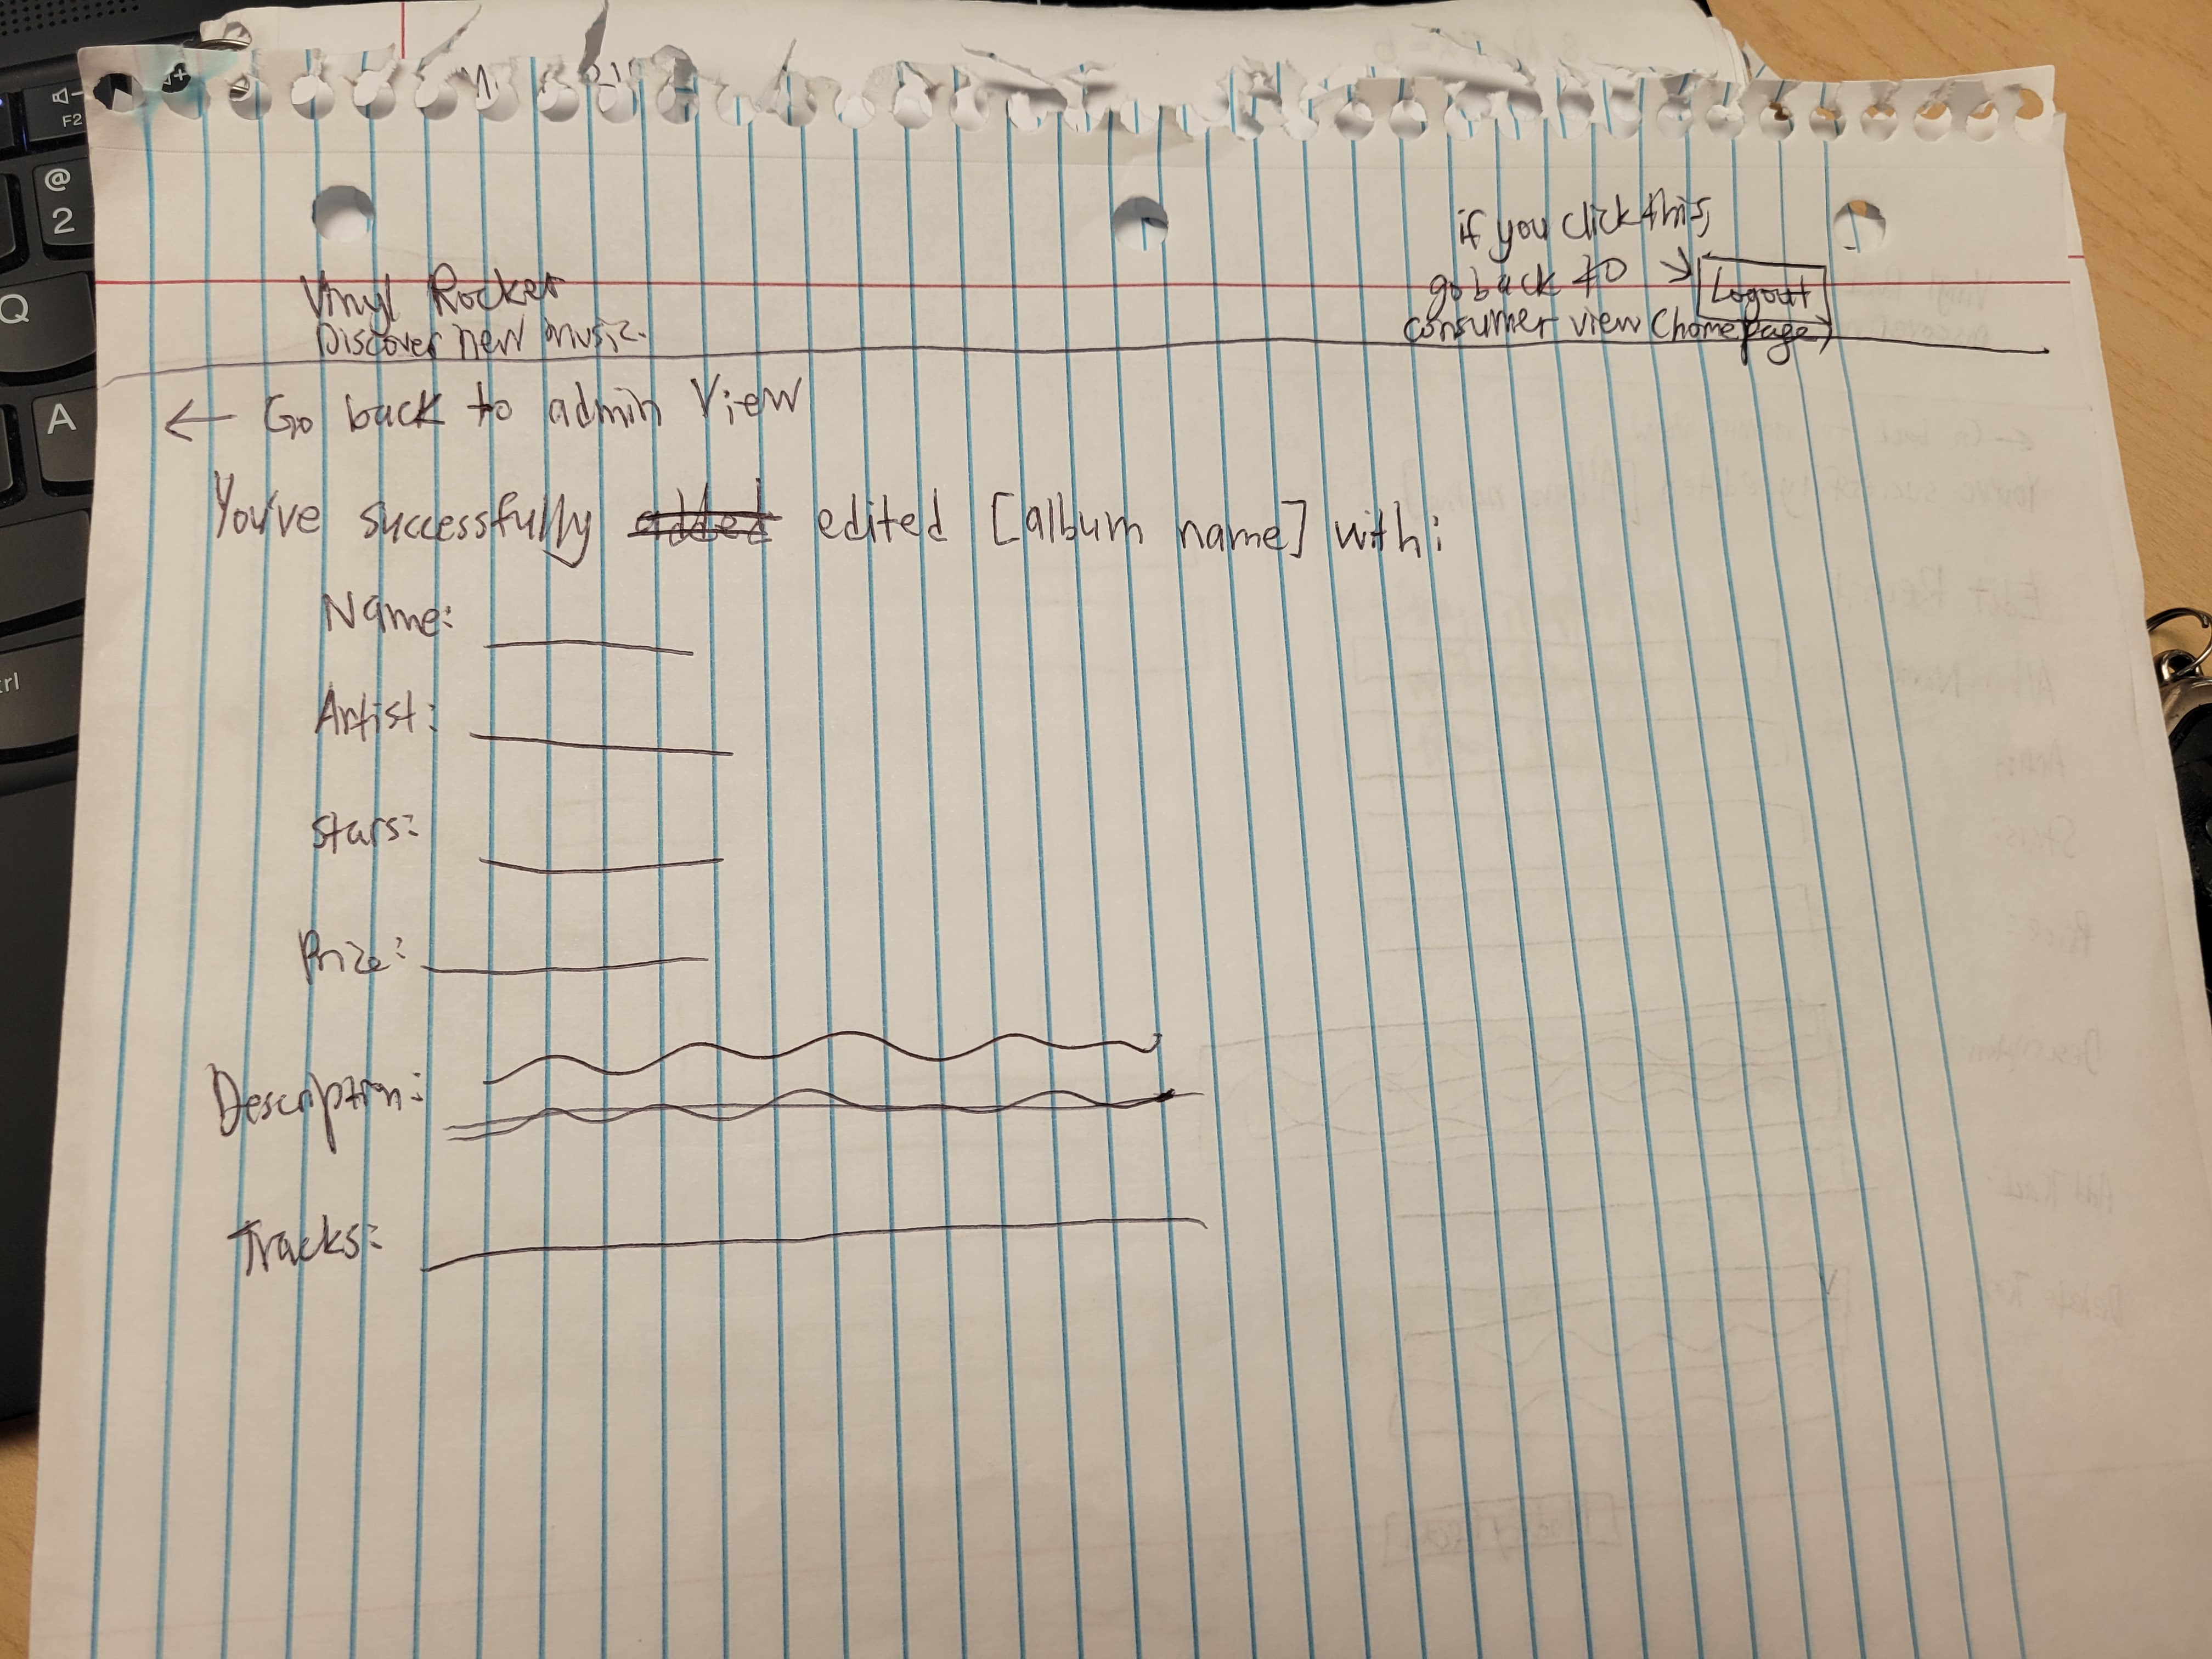 Vinyl Rocket
Discover new music.
if you click this,
go back to →
consumer view (homepage)
Logout
← Go back to admin View
You've successfully added edited [album name] with:
Name:
Artist:
Stars:
Price:
Description:
Tracks:
F2
@
2
Q
A